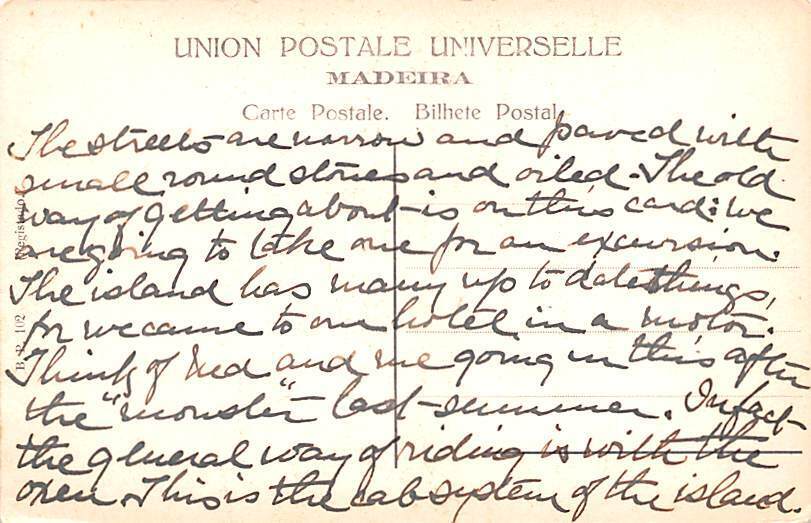 UNION POSTALE UNIVERSELLE
MADEIRA
Carte Postale. Bilhete Postal
The streets are narrow and paved with
small round stones and oiled. The old
way of getting about is on this card: we
are going to take one for an excursion.
The island has many up to date things,
for we came to our hotel in a motor.
Think of Ned and me going in this after
the "monster" last summer. In fact
the general way of riding is with the
oxen. This is the cab system of the island.
B. P. 102 Registado